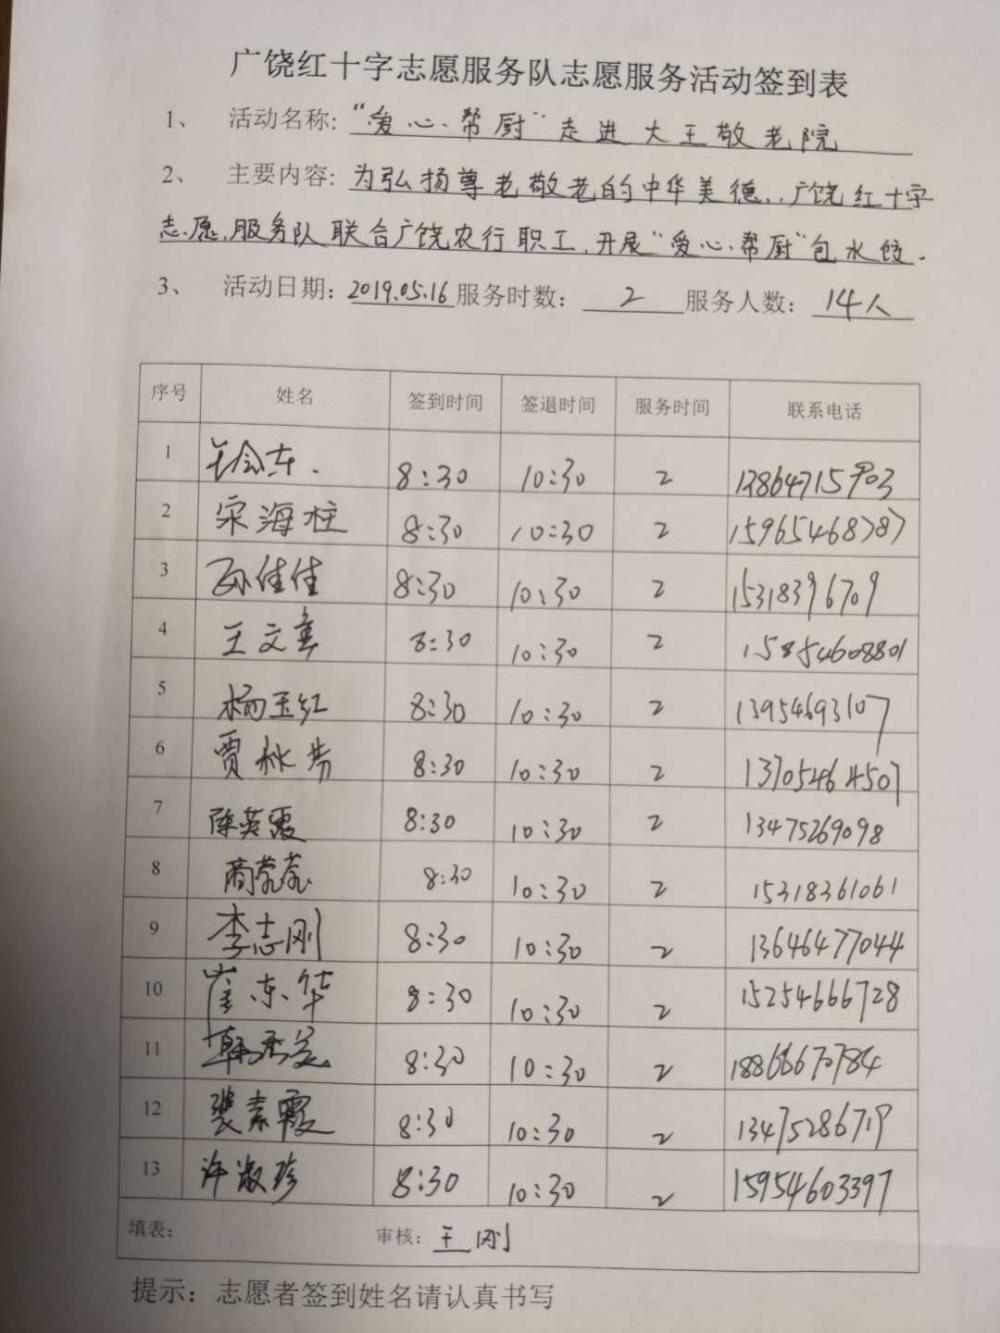 广饶红十字志愿服务队志愿服务活动签到表
1、 活动名称: “爱心帮厨”走进大王敬老院
2、 主要内容: 为弘扬尊老敬老的中华美德,广饶红十字
志愿服务队联合广饶农行职工,开展“爱心帮厨”包水饺.
3、 活动日期: 2019.05.16 服务时数: 2 服务人数: 14人
序号 姓名 签到时间 签退时间 服务时间 联系电话
1 8:30 10:30 2 13864715903
2 宋海柱 8:30 10:30 2 15965468787
3 孙佳佳 8:30 10:30 2 15318396709
4 王文章 8:30 10:30 2 15854608801
5 杨玉红 8:30 10:30 2 13954693107
6 贾秋芳 8:30 10:30 2 13705464507
7 陈英霞 8:30 10:30 2 13475269098
8 商 8:30 10:30 2 15318361061
9 李志刚 8:30 10:30 2 13646477044
10 崔东华 8:30 10:30 2 15254666728
11 韩 8:30 10:30 2 18866670784
12 裴素霞 8:30 10:30 2 13475286719
13 许淑珍 8:30 10:30 2 15954603397
填表: 审核: 王刚
提示: 志愿者签到姓名请认真书写